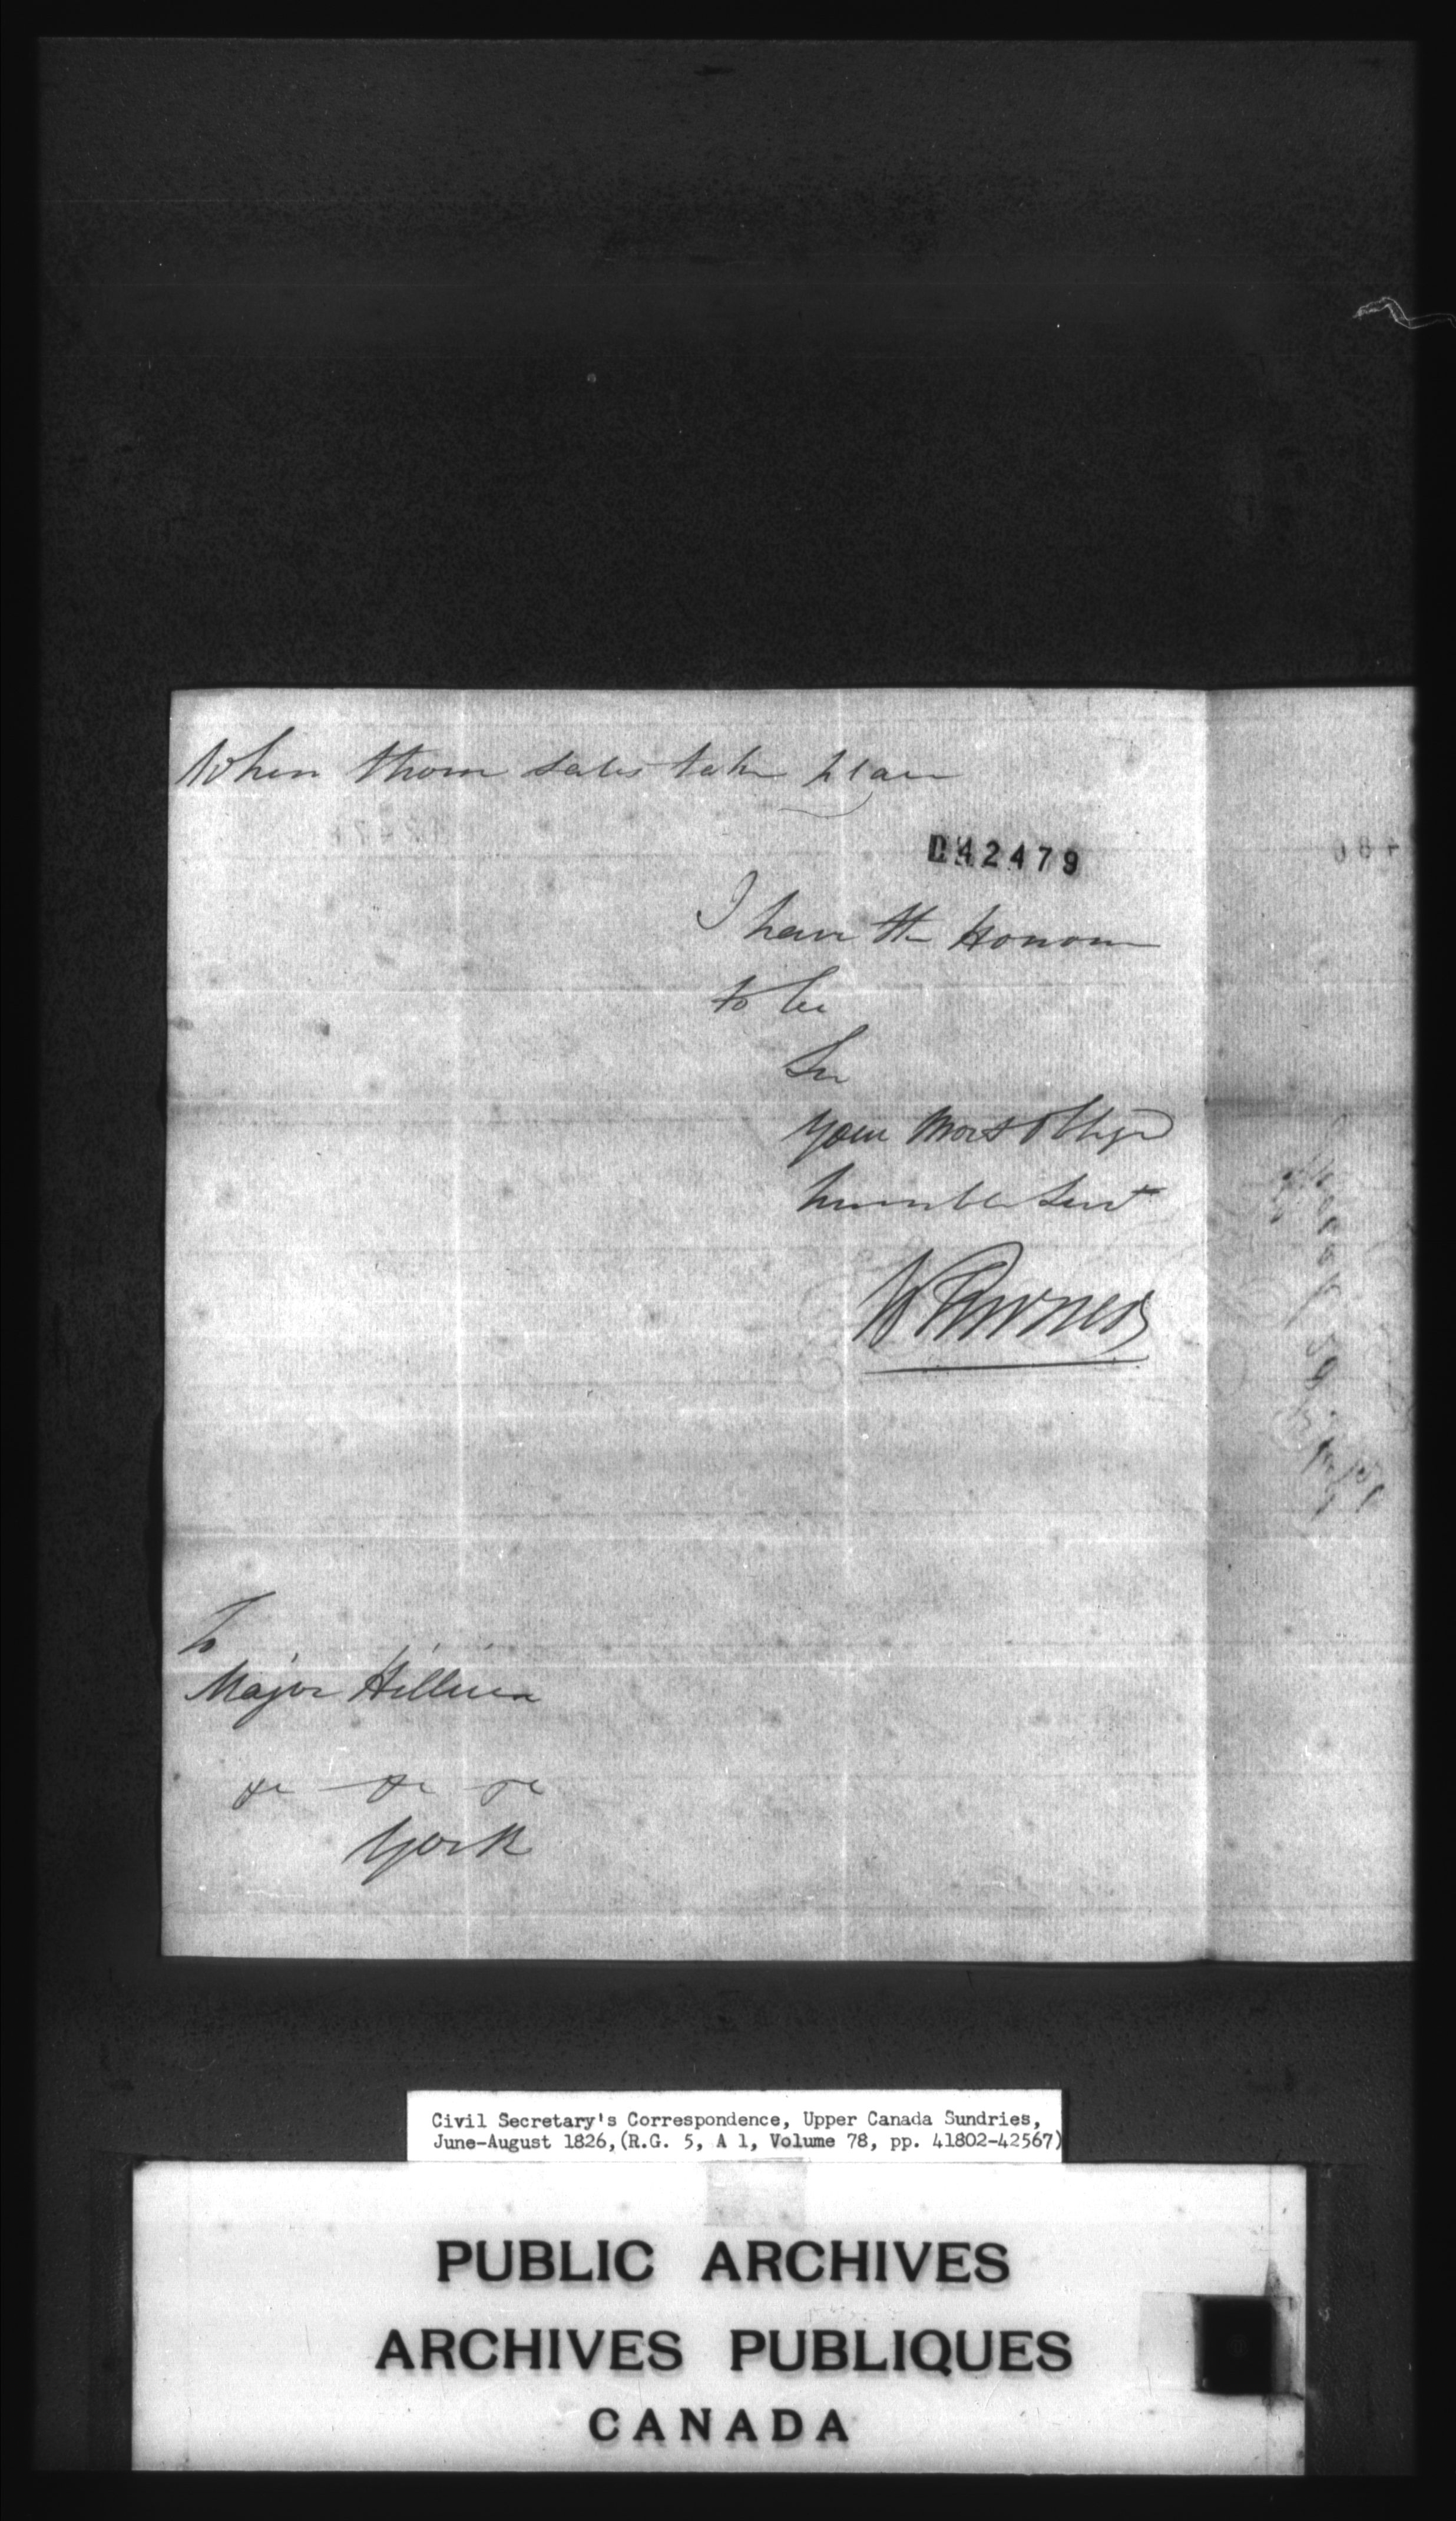 When those sales take place
D42479
I have the Honour
to be
Sir
your most Oblig'd
humble Servt
To
Major Hillier
&c &c &c
York
Civil Secretary's Correspondence, Upper Canada Sundries,
June-August 1826, (R.G. 5, A 1, Volume 78, pp. 41802-42567)
PUBLIC ARCHIVES
ARCHIVES PUBLIQUES
CANADA